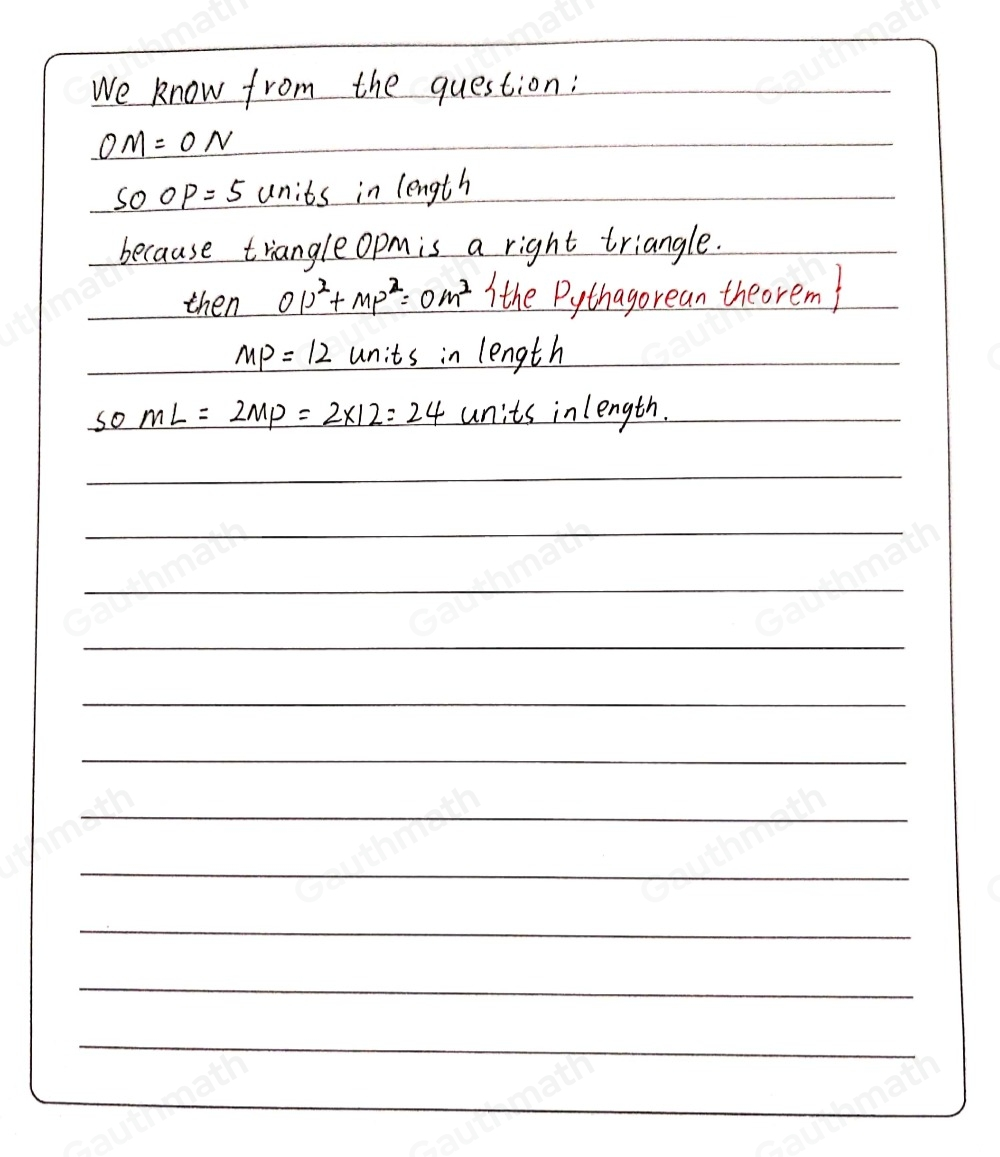 We know from the question:
OM = ON
so OP = 5 units in length
because triangle OPM is a right triangle.
then OP² + MP² = OM² {the Pythagorean theorem}
MP = 12 units in length
so ML = 2MP = 2×12 = 24 units in length.
Gauthmath